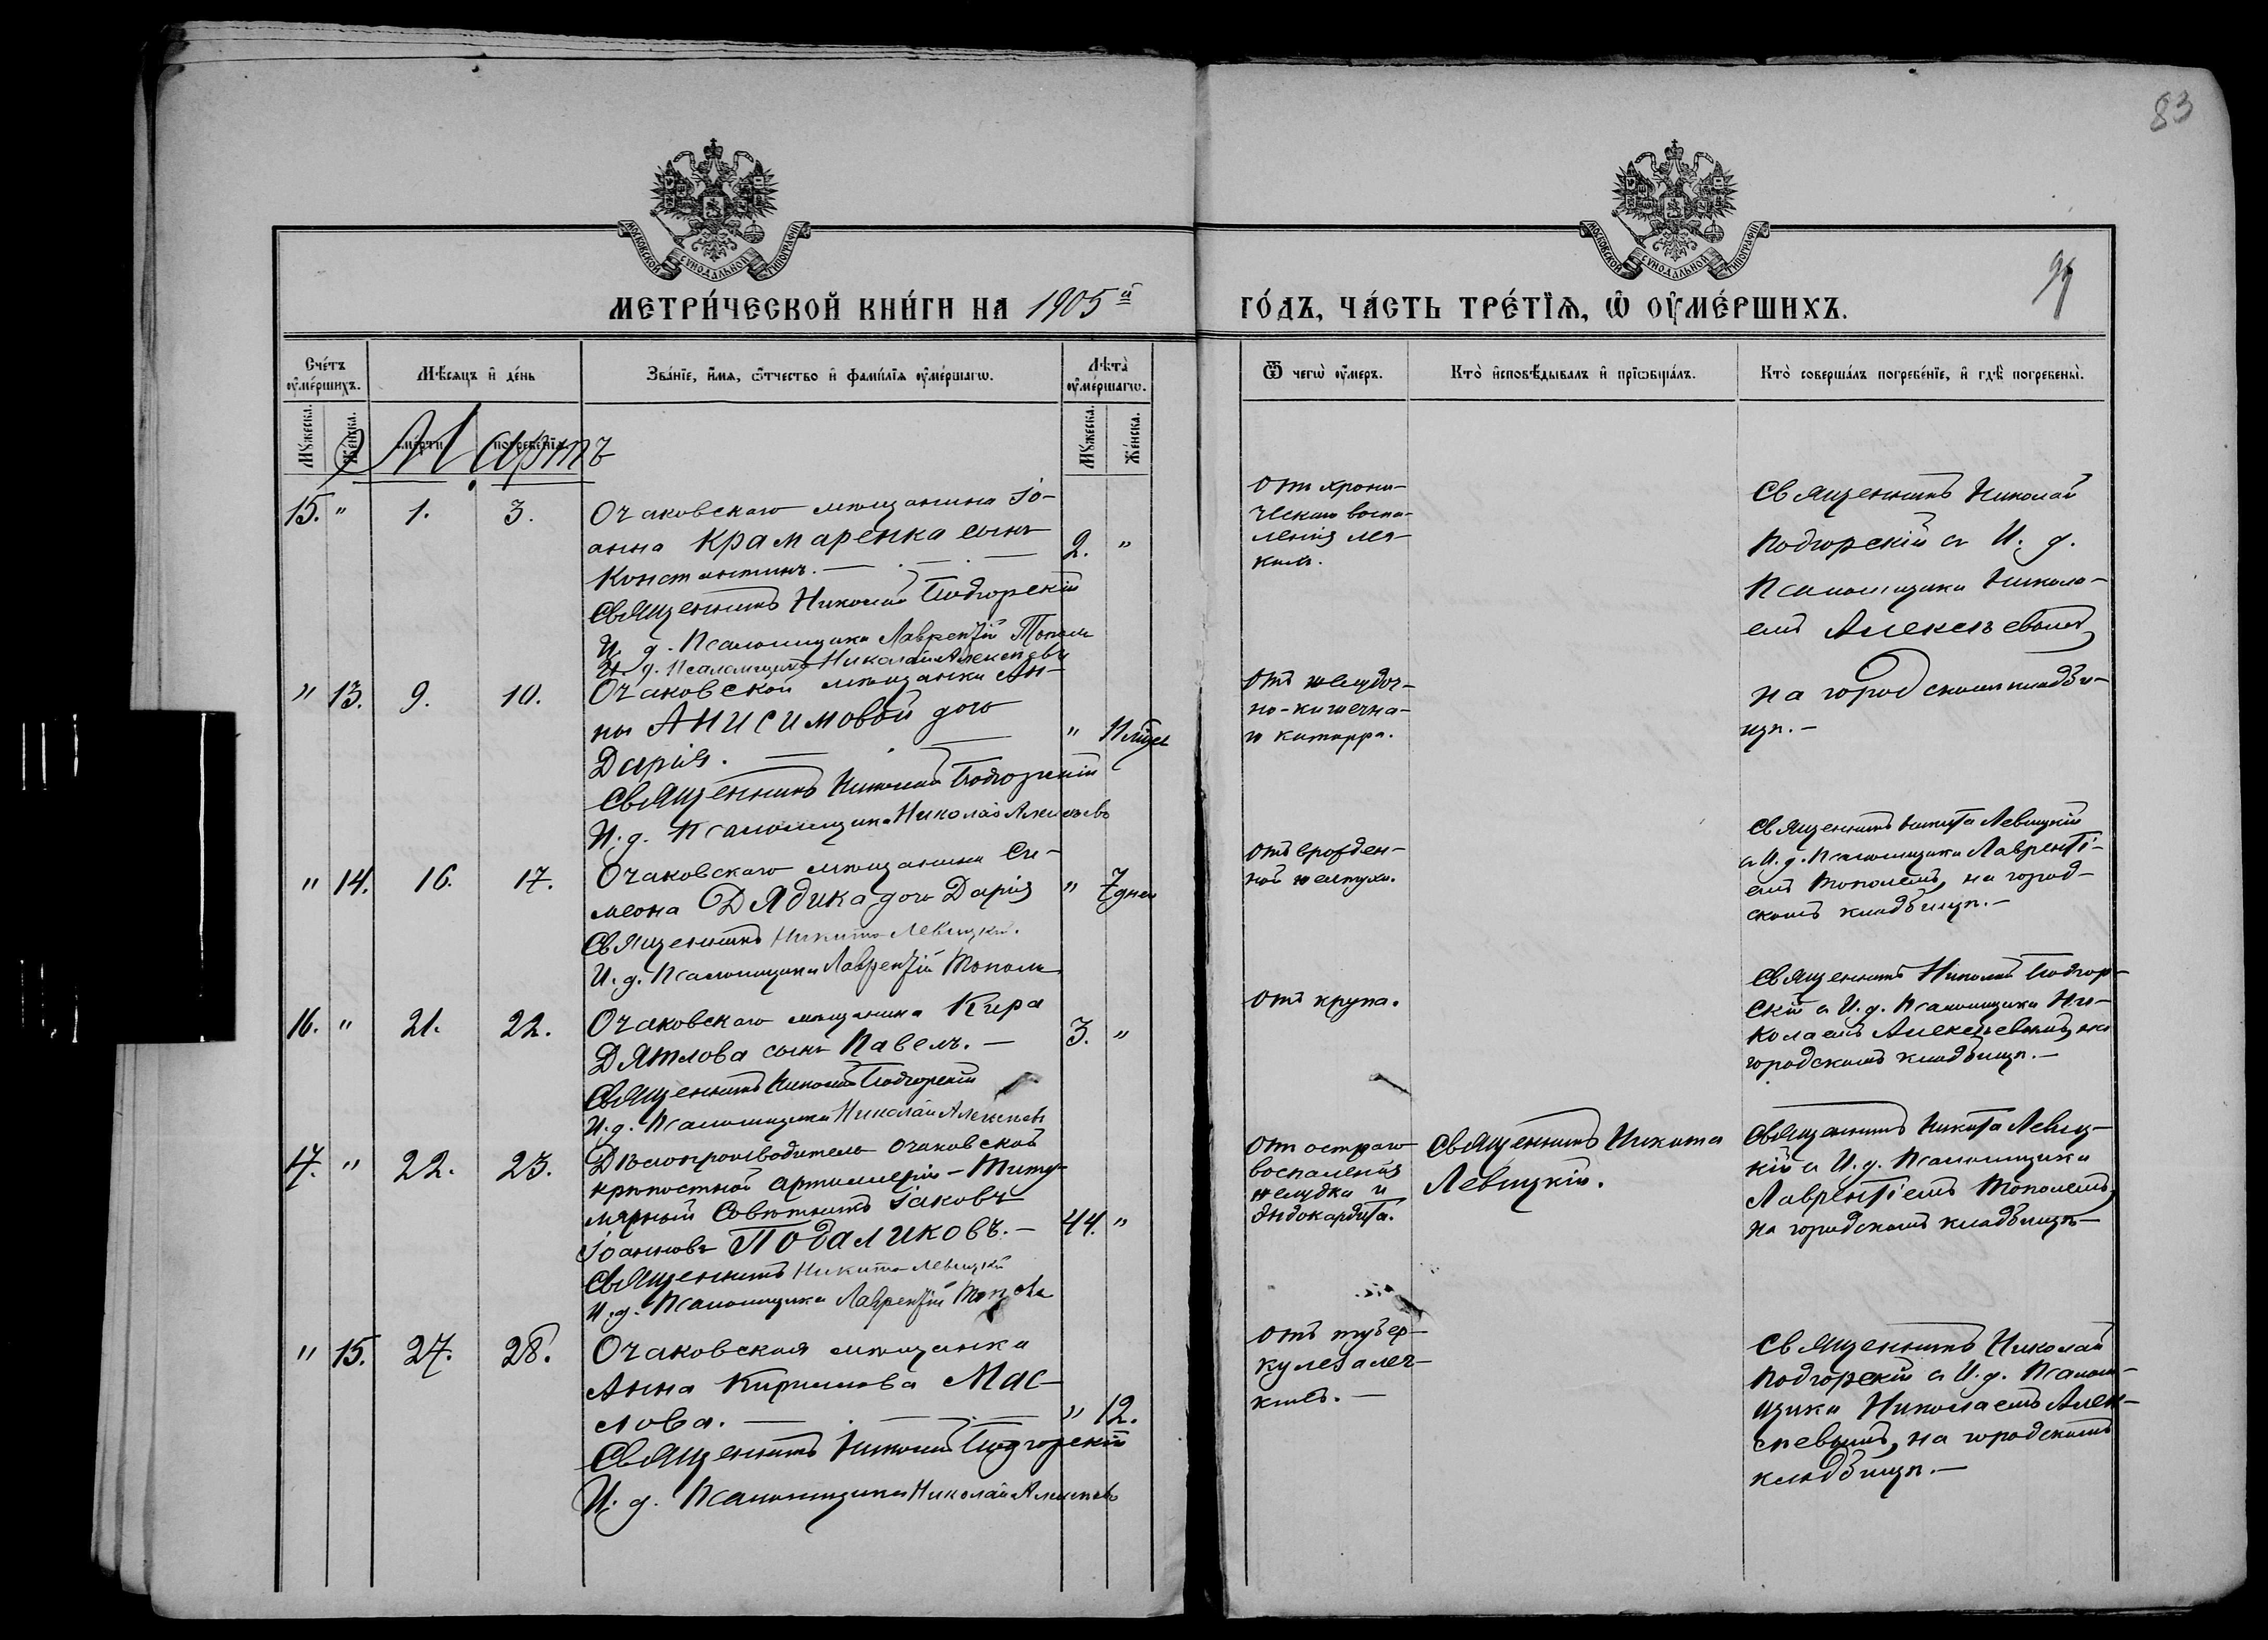 83
99
МОСКОВСКОЙ СѴНОДАЛЬНОЙ ТИПОГРАФІИ
МОСКОВСКОЙ СѴНОДАЛЬНОЙ ТИПОГРАФІИ
МЕТРИ́ЧЕСКОЙ КНИ́ГИ НА 1905й
ГО́ДЪ, ЧА́СТЬ ТРЕ́ТЇѦ, Ѡ҆ ОУ҆МЕ́РШИХЪ.
Сче́тъ оу҆ме́ршихъ.
Мѣ́сяцъ и҆ де́нь
Зва́нїе, и҆́мя, ѻ҆́тчество и҆ фами́лїя оу҆ме́ршагѡ.
Лѣ́та оу҆ме́ршагѡ.
Ѿ чегѡ̀ оу҆́меръ.
Кто̀ и҆сповѣ́дывалъ и҆ прїѡбща́лъ.
Кто̀ соверша́лъ погребе́нїе, и҆ гдѣ̀ погребены̀.
Мꙋ́жеска.
Же́нска.
сме́рти
погребе́нїя
Мꙋ́жеска.
Же́нска.
Мартъ
15. " 1. 3.
Очаковскаго мѣщанина Іо-
анна Крамаренка сынъ
Константинъ.
2. "
Священникъ Николай Подгорскій
И. д. Псаломщика Лаврентій Тополь
И. д. псаломщика Николай Алексѣевъ
От хрони-
ческаго воспа-
ленія лег-
кихъ.
Священникъ Николай
Подгорскій съ И. д.
Псаломщика Никола-
емъ Алексѣевымъ,
на городскомъ кладби-
щѣ.-
" 13. 9. 10.
Очаковской мѣщанки Ан-
ны Анисимовой дочь
Дарія.
" 11 мѣс
Священникъ Николай Подгорскій
И. д. Псаломщика Николай Алексѣевъ
Отъ желудоч-
но-кишечна-
го катарра.
" 14. 16. 17.
Очаковскаго мѣщанина Си-
меона Дядика дочь Дарія
" 7 дней
Священникъ Никита Левицкій.
И. д. Псаломщика Лаврентій Тополь
Отъ врожден-
ной желтухи.
Священникъ Никита Левицкій
съ И. д. Псаломщика Лаврентіе-
емъ Тополемъ, на город-
скомъ кладбищѣ.-
16. " 21. 22.
Очаковскаго мѣщанина Кира
Дятлова сынъ Павелъ.-
3. "
Священникъ Николай Подгорскій
И. д. Псаломщика Николай Алексѣевъ
Отъ крупа.
Священникъ Николай Подгор-
скій съ И. д. Псаломщика Ни-
колаемъ Алексѣевымъ, на
городскомъ кладбищѣ.-
17. " 22. 23.
Дѣлопроизводитель Очаковской
крѣпостной артиллеріи - Титу-
лярный Совѣтникъ Іаковъ
Іоанновъ Подаликовъ.-
44. "
Священникъ Никита Левицкій
И. д. Псаломщика Лаврентій Тополь
От остраго
воспаленія
желудка и
эндокардита.
Священникъ Никита
Левицкій.
Священникъ Никита Левиц-
кій съ И. д. Псаломщика
Лаврентіемъ Тополемъ,
на городскомъ кладбищѣ-
" 15. 27. 28.
Очаковская мѣщанка
Анна Кириллова Мас-
лова.
" 12.
Священникъ Николай Подгорскій
И. д. Псаломщика Николай Алексѣевъ
Отъ тубер-
кулеза лег-
кихъ.-
Священникъ Николай
Подгорскій съ И. д. Псалом-
щика Николаемъ Алек-
сѣевымъ, на городскомъ
кладбищѣ.-